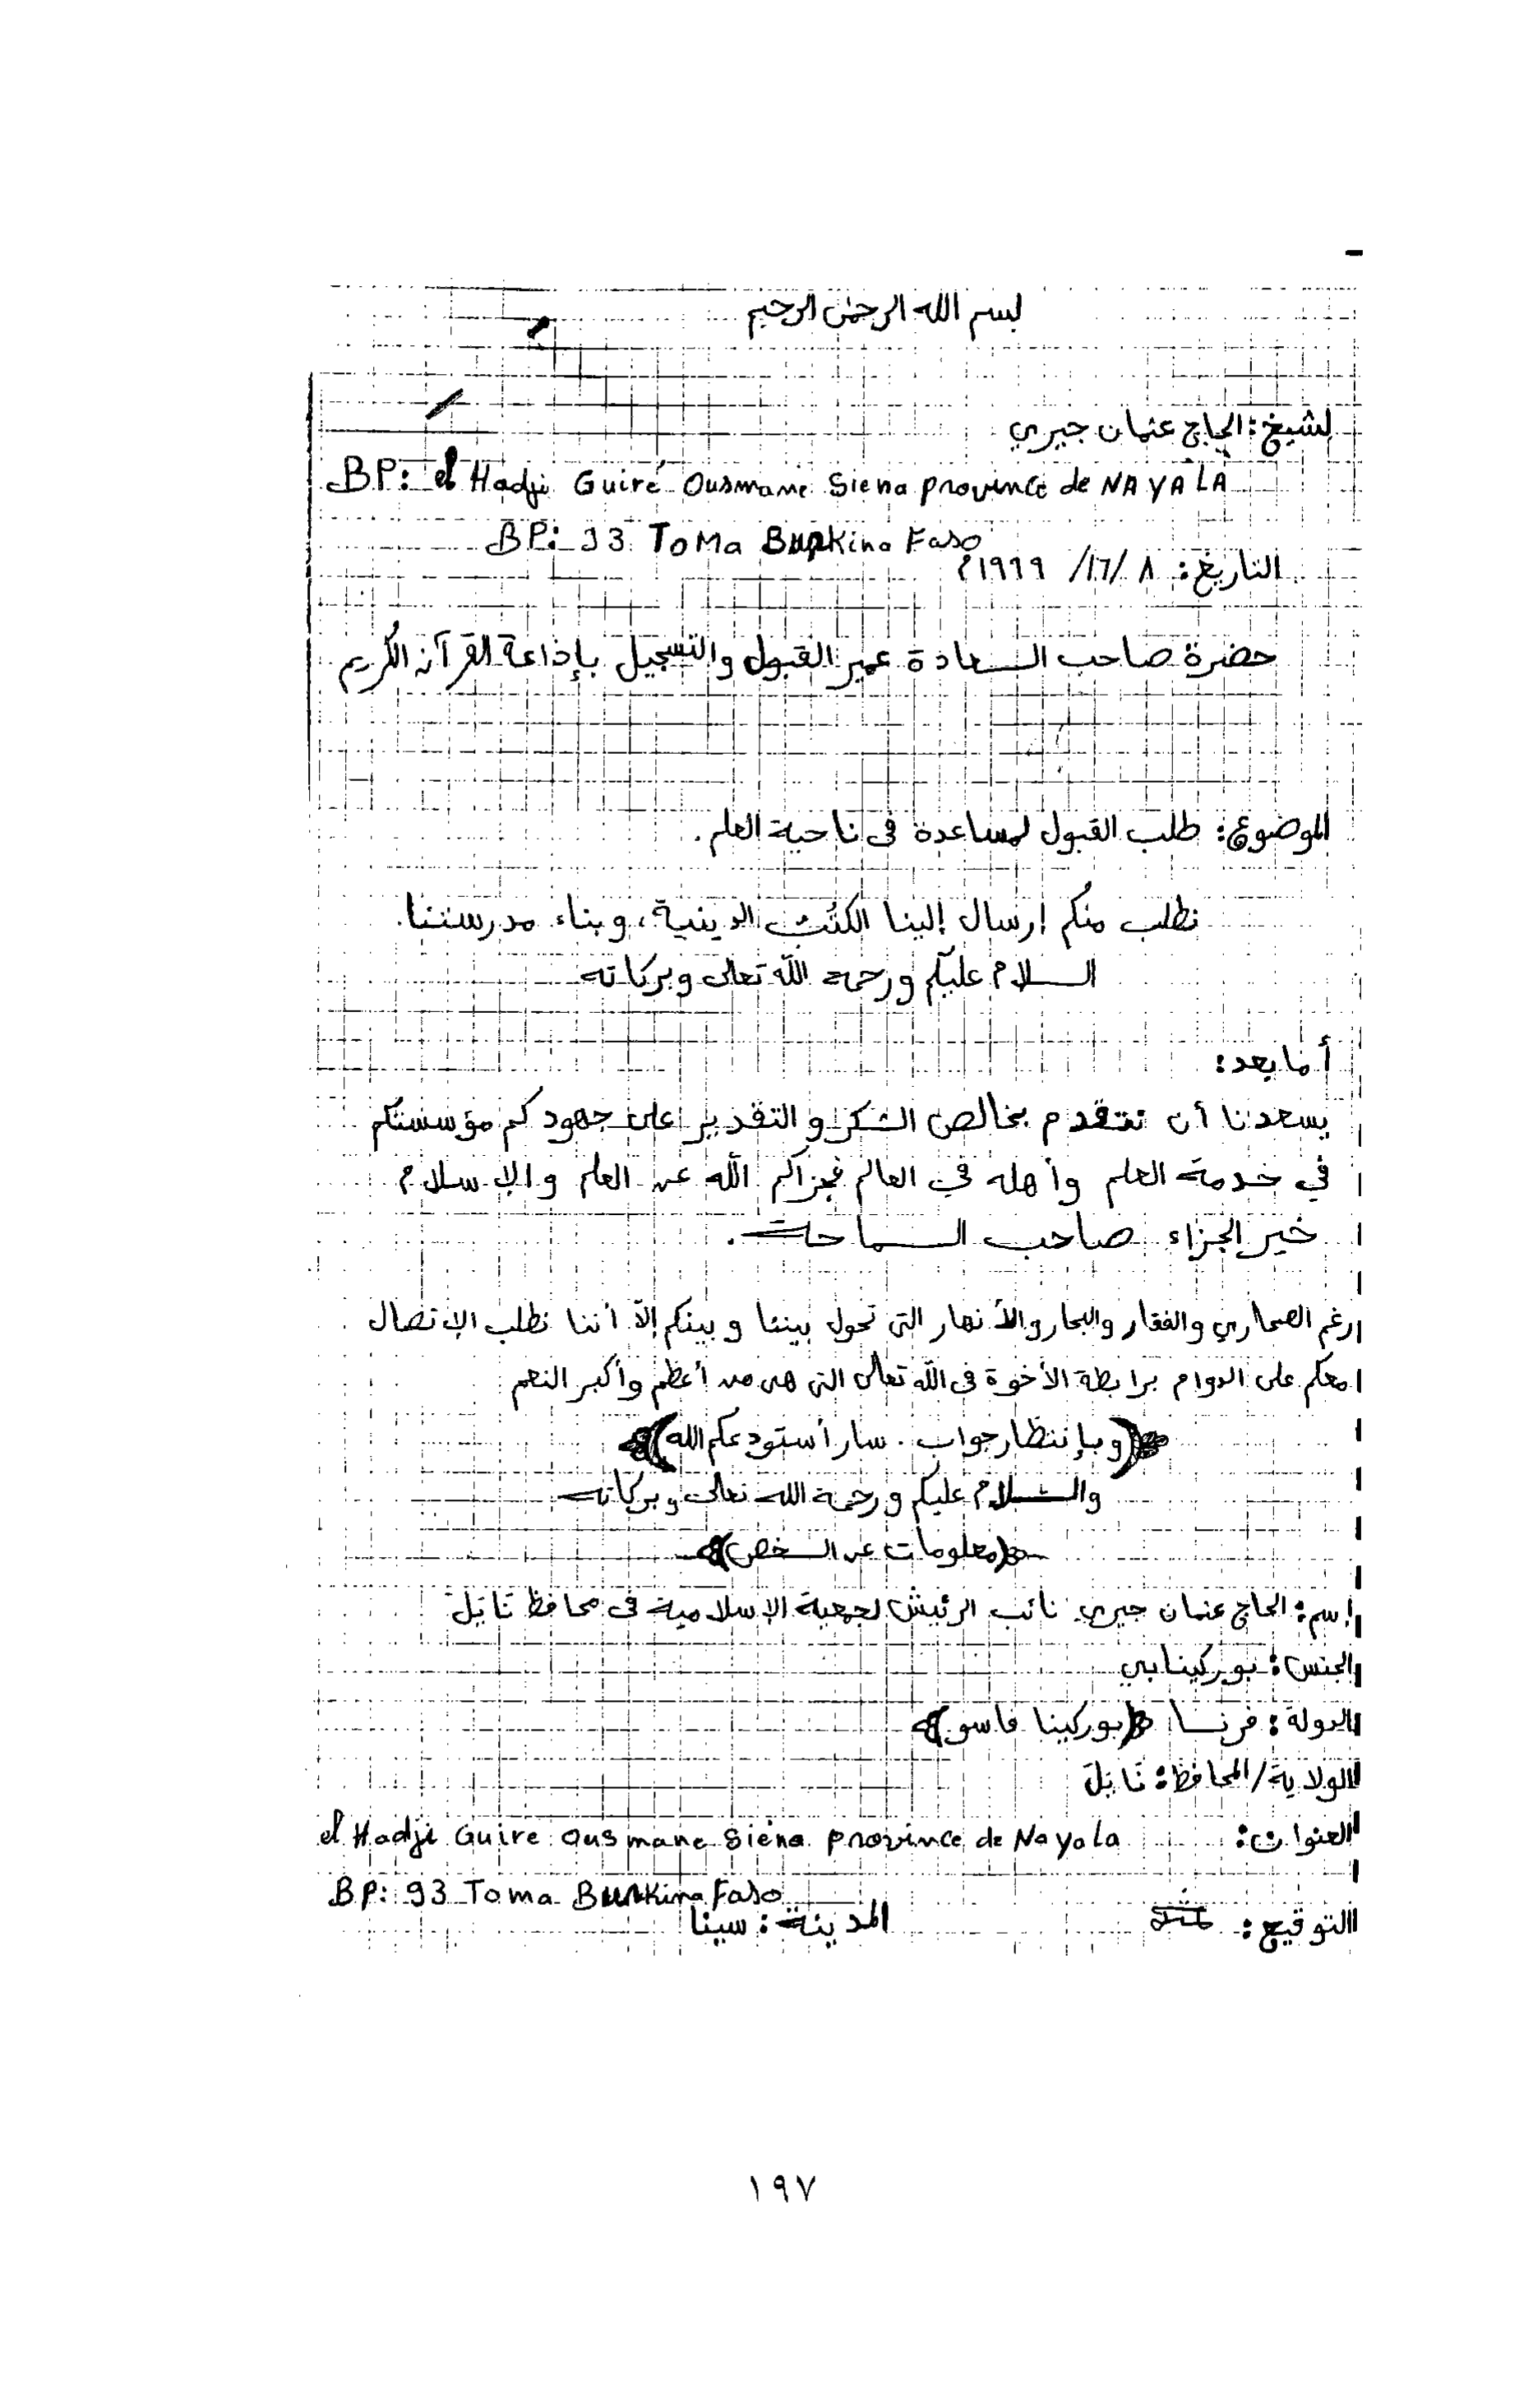 بسم الله الرحمن الرحيم
لشيخ: الحاج عثمان جيري
BP: el Hadji Guire Ousmane Siena province de NAYALA
BP: 93 Toma Burkina Faso
التاريخ: ٨ /١٦/ ١٩٩٩م
حضرة صاحب السعادة عمير القبول والتسجيل بإذاعة القرآن الكريم
الموضوع: طلب القبول لمساعدة في ناحية العلم.
نطلب منكم إرسال إلينا الكتب الدينية، وبناء مدرستنا.
السلام عليكم ورحمة الله تعالى وبركاته
أما بعد:
يسعدنا أن نتقدم بخالص الشكر والتقدير على جهودكم مؤسستكم
في خدمة العلم وأهله في العالم فجزاكم الله عن العلم والإسلام
خير الجزاء صاحب السماحة.
رغم الصحاري والفقار والبحار والأنهار التي تحول بيننا وبينكم إلاّ أننا نطلب الإتصال
معكم على الدوام برابطة الأخوة في الله تعالى التي هي من أعظم وأكبر النعم
(وبإنتظار جواب. سار أستودعكم الله)
والسلام عليكم ورحمة الله تعالى وبركاته
(معلومات عن السخص)
إسم: الحاج عثمان جيري نائب الرئيش لجمعية الإسلامية في محافظ نايَلَ
الجنس: بوركينابي
الدولة: فرنسا (بوركينا فاسو)
الولاية/المحافظ: نايَلَ
العنوان: el Hadji Guire Ousmane Siena province de Nayala
BP: 93 Toma Burkina Faso
التوقيع: المدينة: سينا
١٩٧